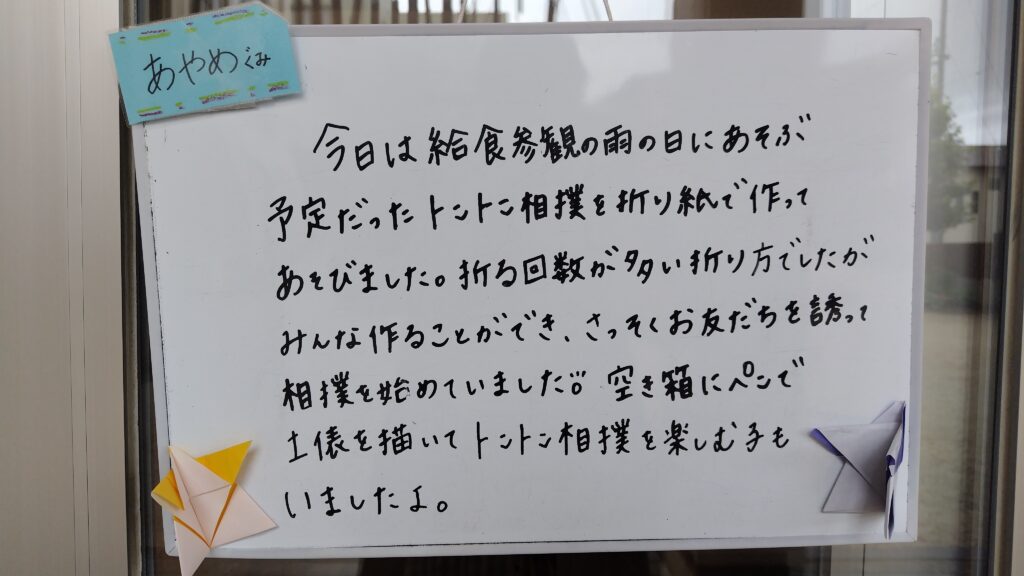 あやめぐみ
今日は給食参観の雨の日にあそぶ
予定だったトントン相撲を折り紙で作って
あそびました。折る回数が多い折り方でしたが
みんな作ることができ、さっそくお友だちを誘って
相撲を始めていました!! 空き箱にペンで
土俵を描いてトントン相撲を楽しむ子も
いましたよ。